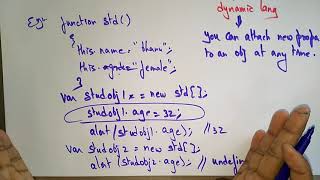 dynamic lang
you can attach new prope
to an obj at any time.
Eg:- function std()
{
this.name = "bhanu";
this.gender = "female";
}
var studobj1 = new std();
studobj1.age = 32;
alert(studobj1.age); //32
var studobj2 = new std();
alert(studobj2.age); // undefin